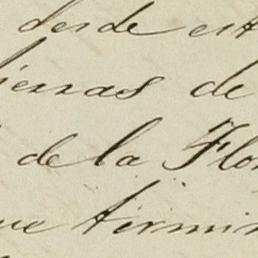 desde est
ierras de
de la Flo
ue termin